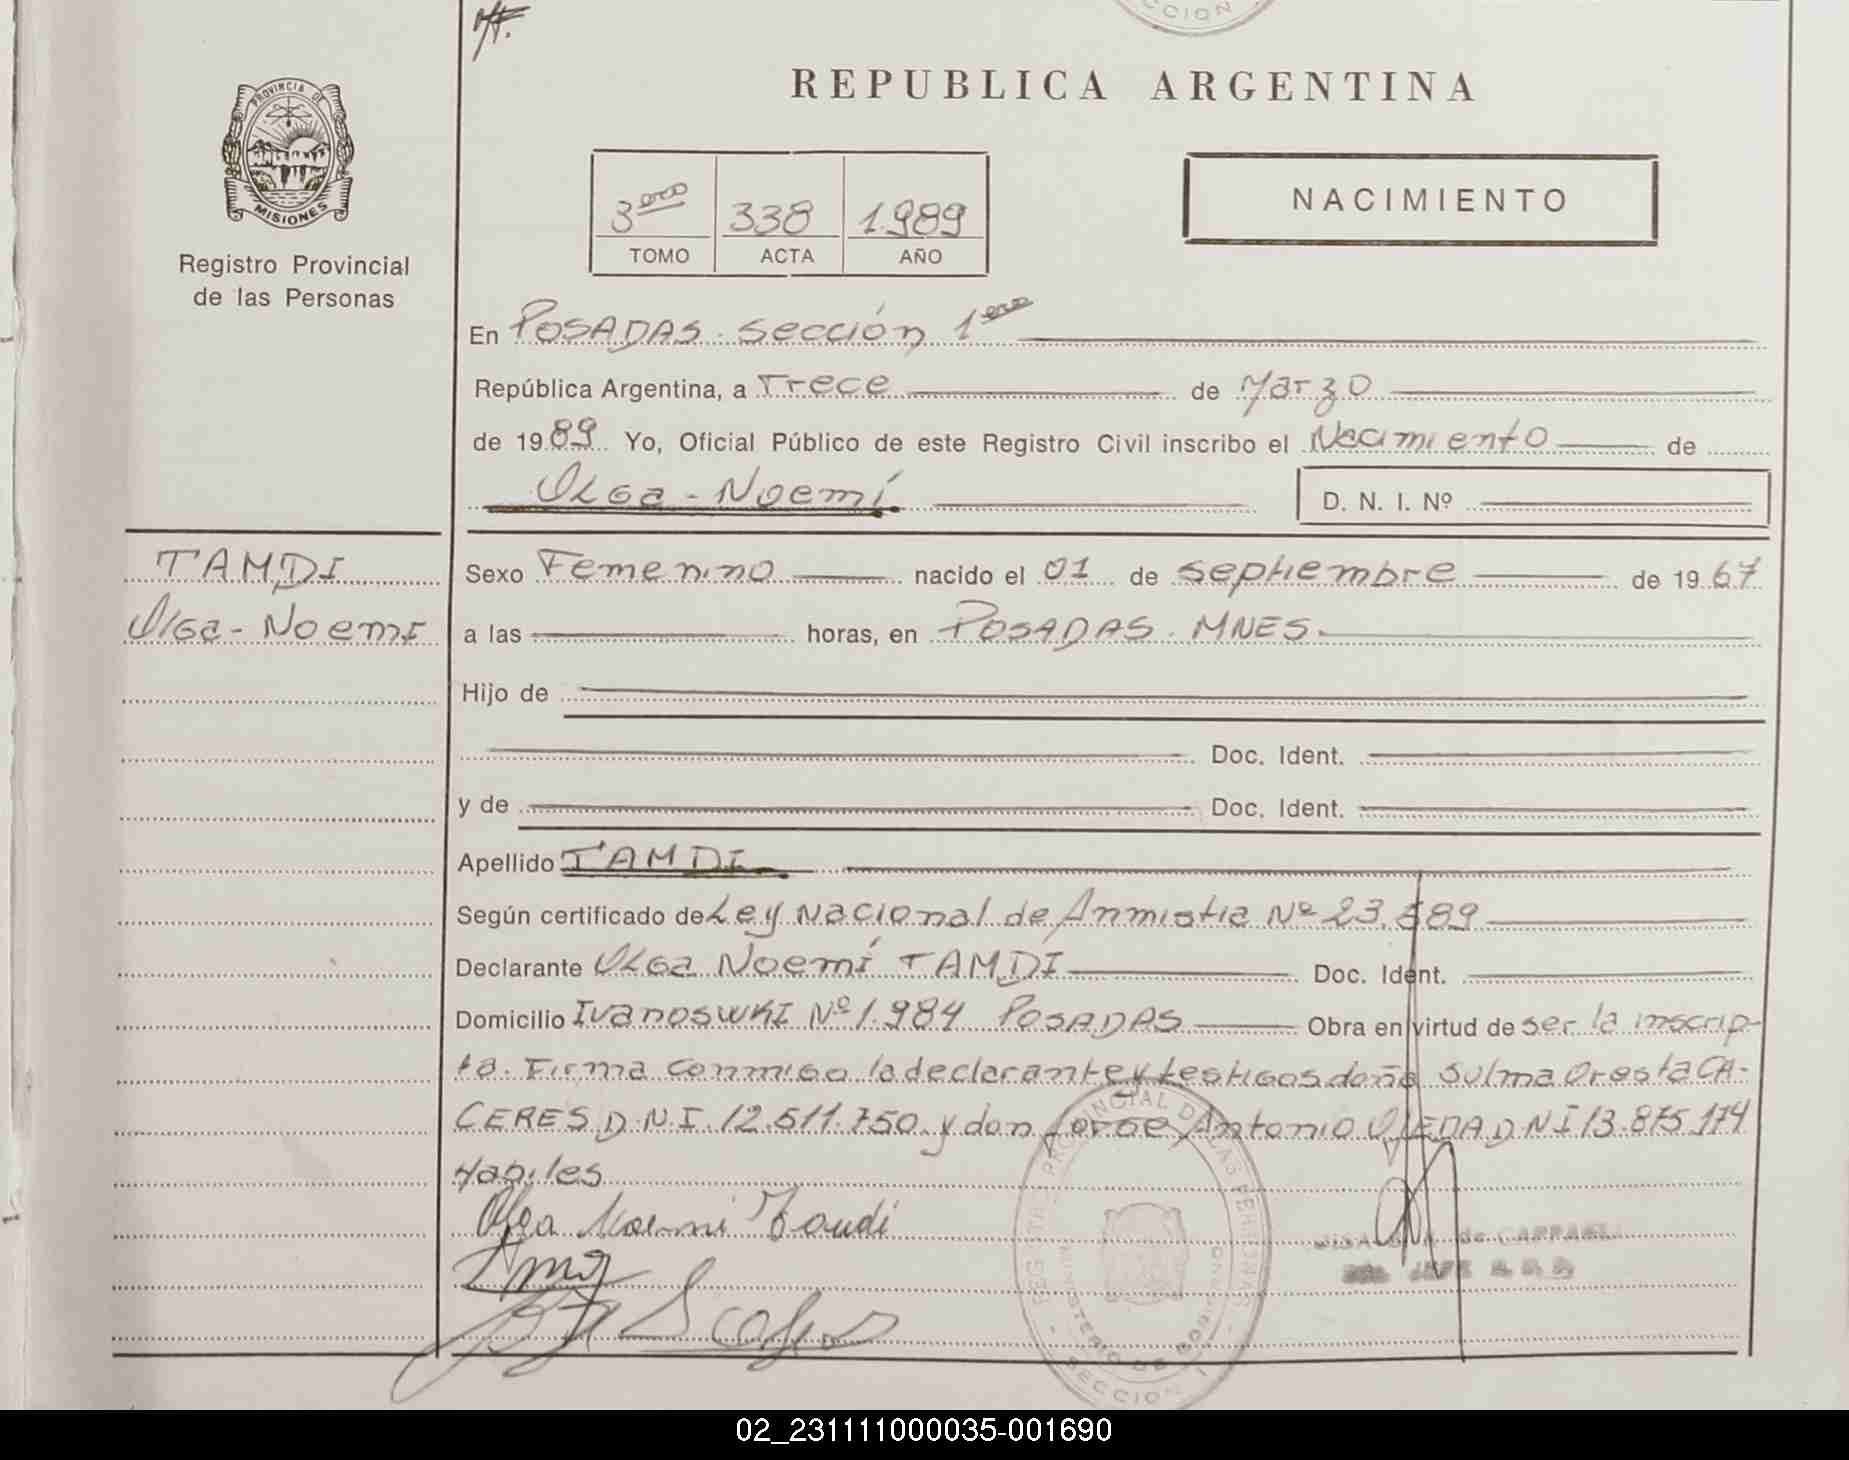 CCION
PROVINCIA DE
MISIONES
Registro Provincial
de las Personas
REPUBLICA ARGENTINA
3era 338 1.989
TOMO ACTA AÑO
NACIMIENTO
En POSADAS. Sección 1era
República Argentina, a Trece de Marzo
de 1989 Yo, Oficial Público de este Registro Civil inscribo el Nacimiento de
Olga - Noemí D. N. I. Nº
TAMDI
Olga - Noemi
Sexo Femenino nacido el 01 de septiembre de 1967
a las horas, en POSADAS. MNES.
Hijo de
Doc. Ident.
y de Doc. Ident.
Apellido TAMDI
Según certificado de Ley Nacional de Anmistia Nº 23.589
Declarante Olga Noemí TAMDI Doc. Ident.
Domicilio Ivanoswki Nº 1.984 POSADAS Obra en virtud de ser la inscrip-
ta. Firma conmigo la declarante y testigos doña Sulma Oresta CA-
CERES D.N.I. 12.511.750. y don Jorge Antonio D N I 13.875.174
Habiles
Olga Noemi Tamdi
REGISTRO PROVINCIAL DE LAS PERSONAS
MINISTERIO DE GOBIERNO
SECCION 1
de CAPPAELI
JEFE
02_231111000035-001690